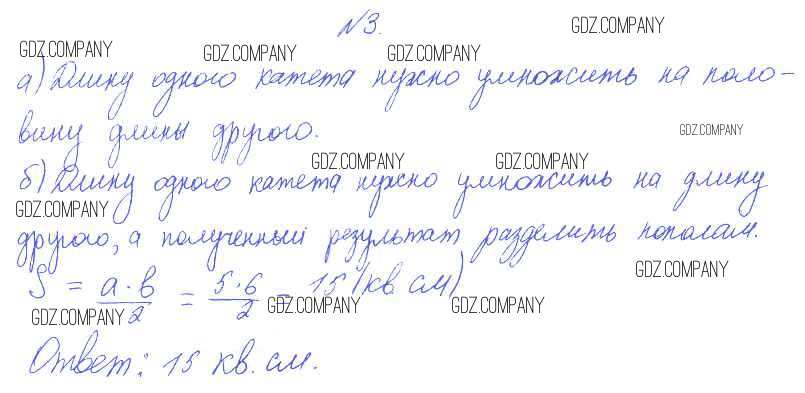 №3.
GDZ.COMPANY
GDZ.COMPANY GDZ.COMPANY GDZ.COMPANY
а) Длину одного катета нужно умножить на поло-
вину длины другого.
GDZ.COMPANY
GDZ.COMPANY GDZ.COMPANY
б) Длину одного катета нужно умножить на длину
GDZ.COMPANY
другого, а полученный результат разделить пополам.
GDZ.COMPANY
S = a·b/2 = 5·6/2 = 15 (кв. см)
GDZ.COMPANY GDZ.COMPANY GDZ.COMPANY
Ответ: 15 кв. см.